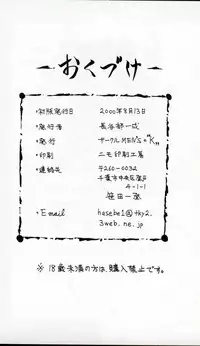 おくづけ
・初版発行日 2000年8月13日
・発行者 長谷部一成
・発行 サークルMEN'S "K"
・印刷 ニモ印刷工房
・連絡先 〒260-0032
千葉市中央区登戸
4-1-1
笹田一成
・E mail hasebe1@tky2.
3web.ne.jp
※18歳未満の方は、購入禁止です。